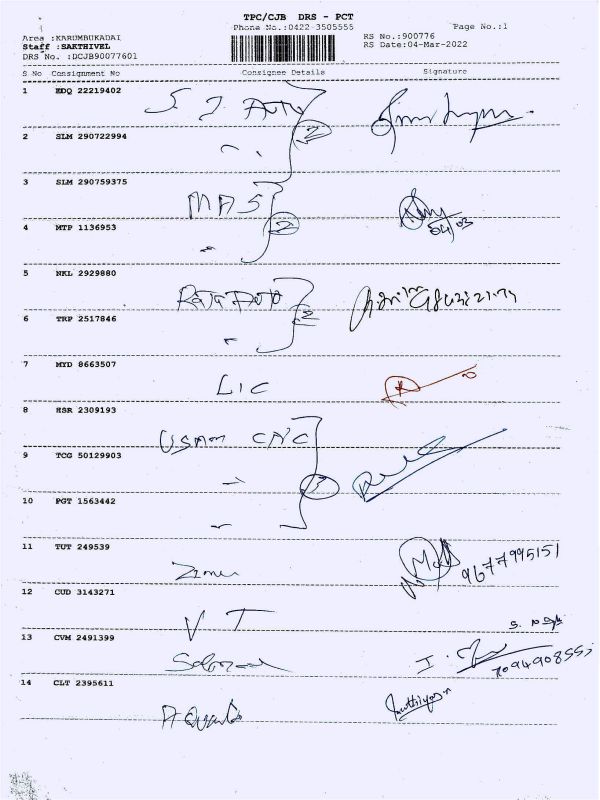 TPC/CJB DRS - PCT
Phone No.:0422-3505555
Page No.:1
Area :KARUMBUKADAI
RS No.:900776
Staff :SAKTHIVEL
RS Date:04-Mar-2022
DRS No. :DCJB90077601
S No Consignment No Consignee Details Signature
1 EDQ 22219402
S. J. Auto 2
2 SLM 290722994
3 SLM 290759375
MAS 2
4 MTP 1136953
04/03
5 NKL 2929880
Raja Auto 2
6 TRP 2517846
7 MYD 8663507
LIC
8 HSR 2309193
CNC
9 TCG 50129903
3
10 PGT 1563442
11 TUT 249539
9677995151
12 CUD 3143271
V T
13 CVM 2491399
14 CLT 2395611